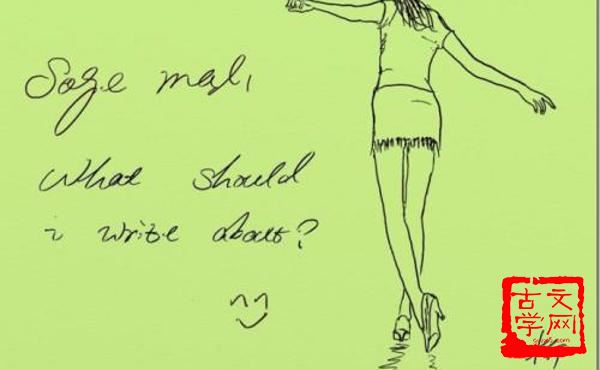 Sage mal,
What should
i write about?
古文
学网